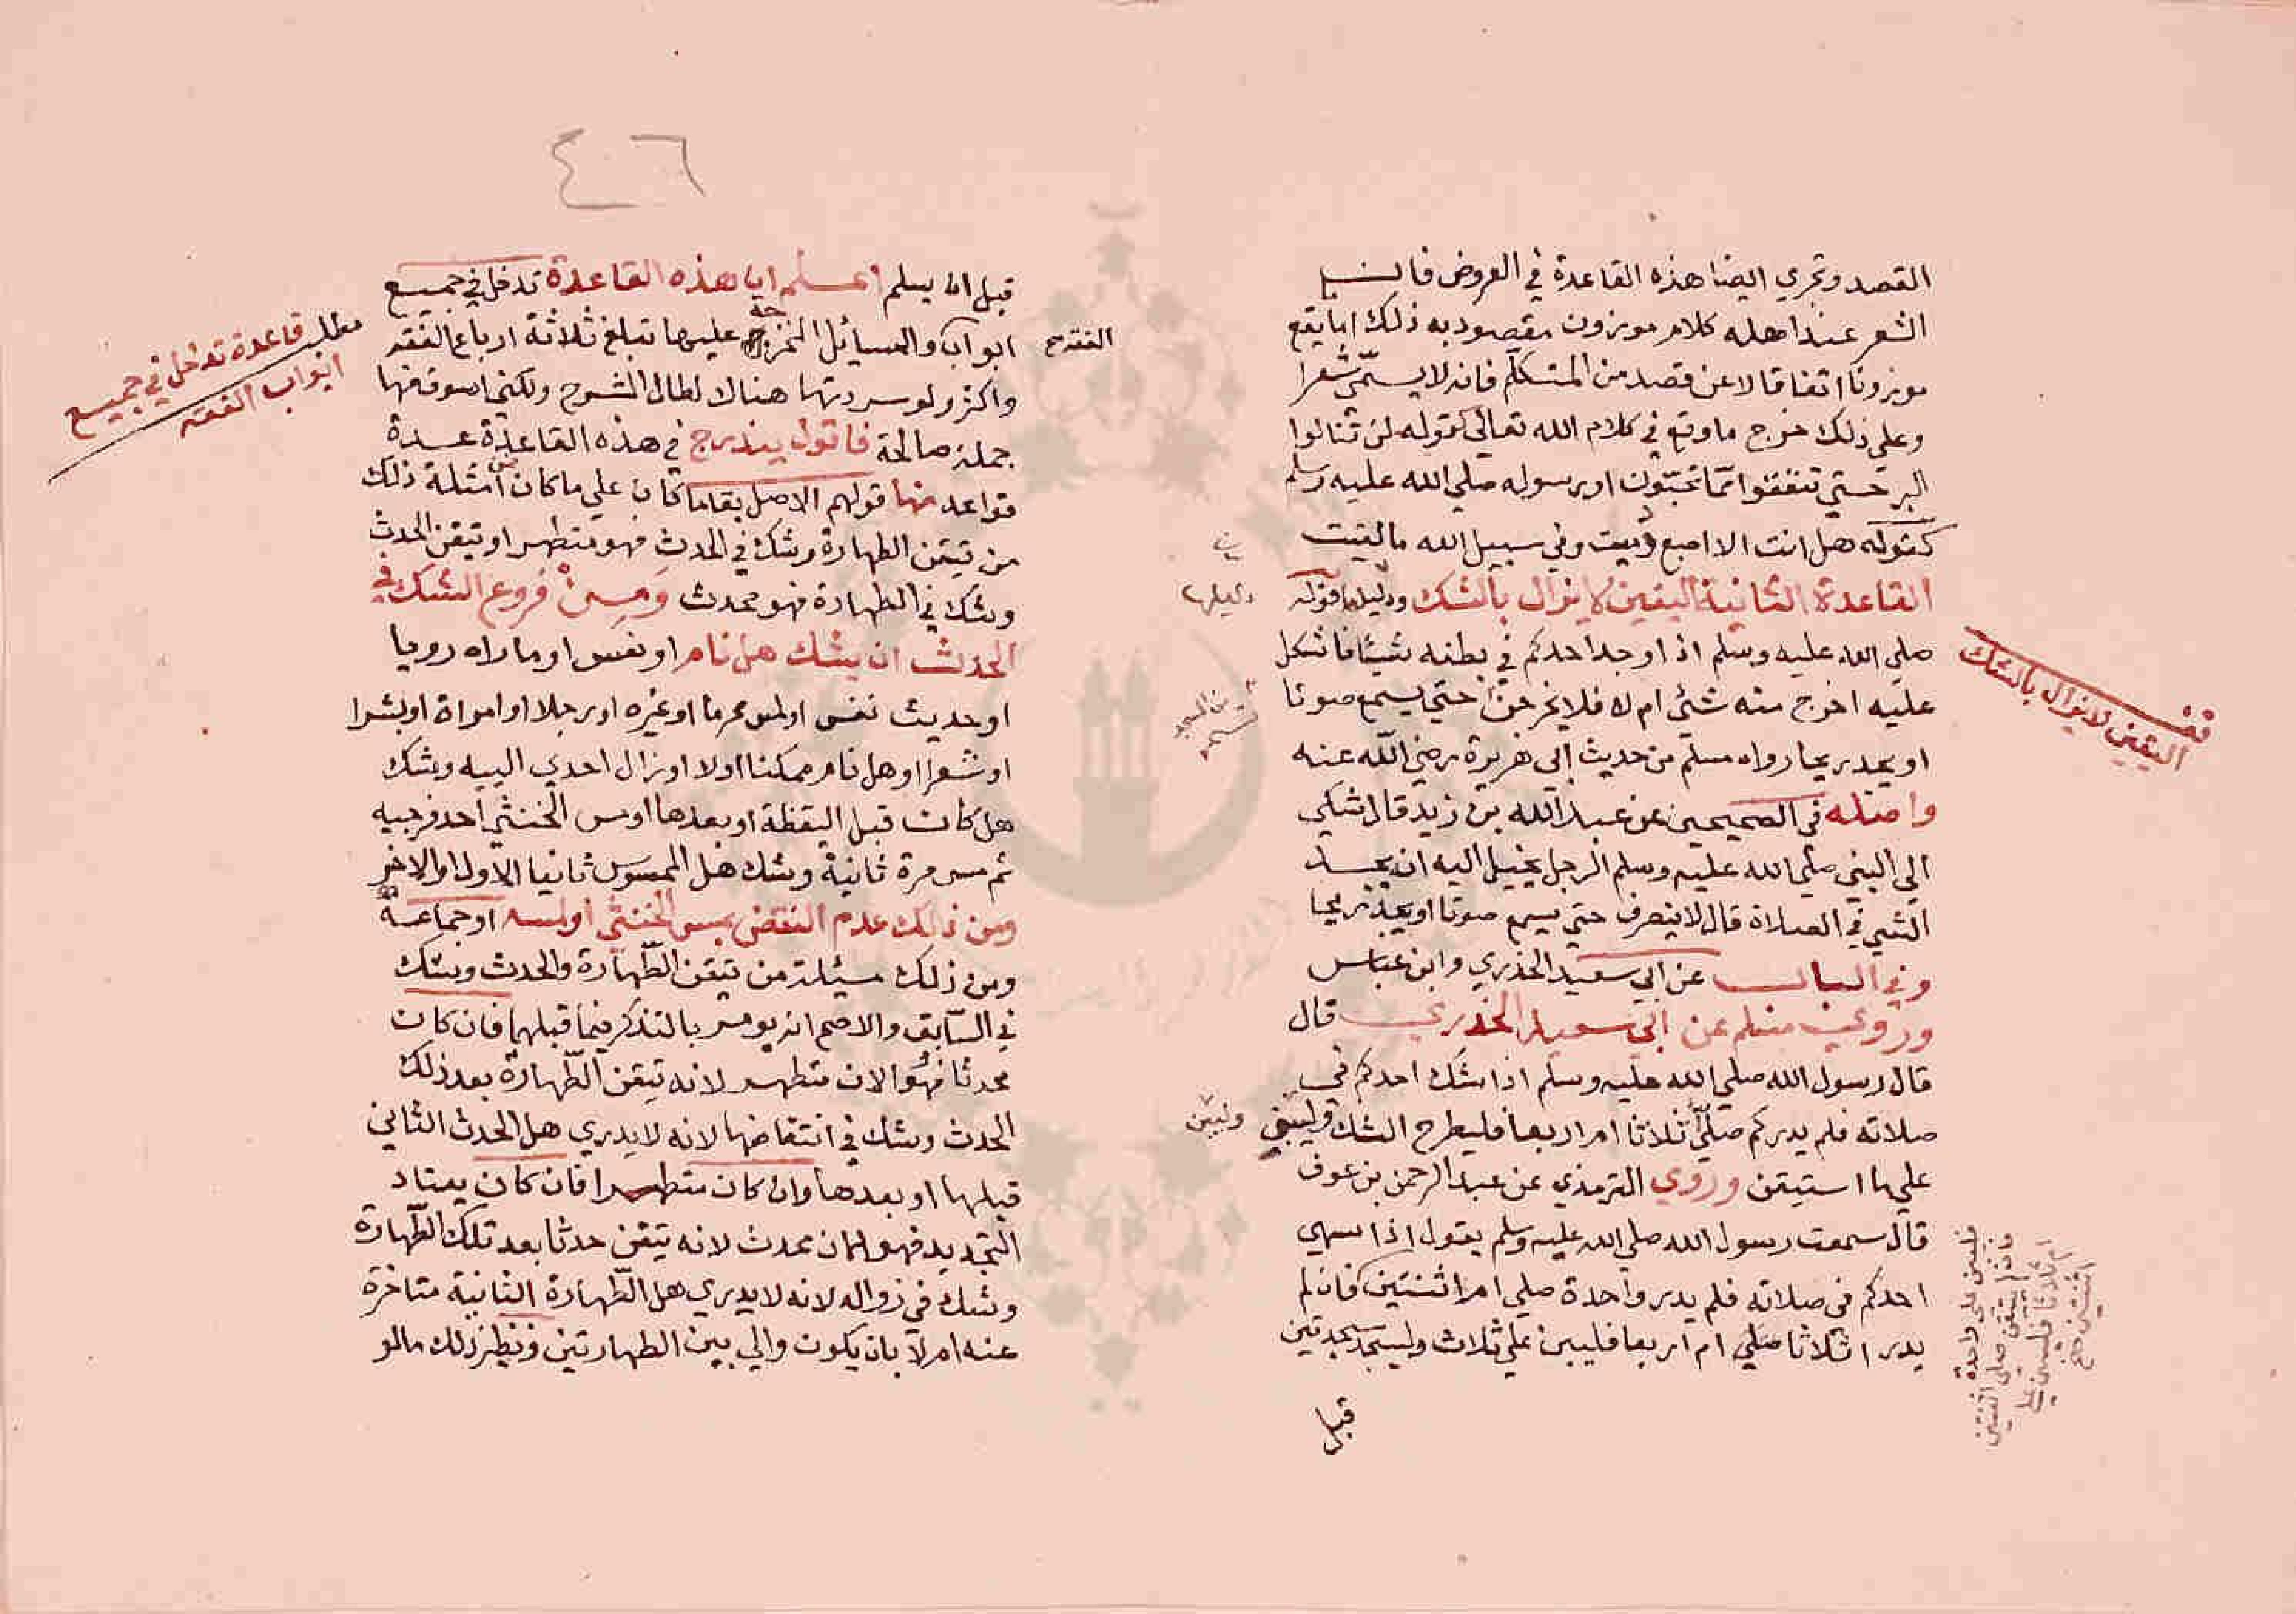 القصد وتجري ايضا هذه القاعدة في العروض فان
الشعر عند اهله كلام موزون مقصود به ذلك اما يقع
موزونا اتفاقا لا عن قصد من المتكلم فانه لا يسمى شعرا
وعلي ذلك خرج ما وقع في كلام الله تعالى كقوله لن تنالوا
البر حتي تنفقوا مما تحبون او رسوله صلي الله عليه وسلم
كقوله هل انت الا اصبع دميت وفي سبيل الله ما لقيت
القاعدة الثانية اليقين لا يزال بالشك ودليلها قوله
دليلها
صلي الله عليه وسلم اذا وجد احدكم في بطنه شيئا فاشكل
عليه اخرج منه شئ ام لا فلا يخرجن حتي يسمع صوتا
من المسجد
او يجد ريحا رواه مسلم من حديث ابي هريرة رضي الله عنه
واصله في الصحيحين عن عبد الله بن زيد قال شكي
الي النبي صلي الله عليه وسلم الرجل يخيل اليه انه يجد
الشي في الصلاة قال لا ينصرف حتي يسمع صوتا او يجد ريحا
وفي الباب عن ابي سعيد الخدري وابن عباس
وروي مسلم عن ابي سعيد الخدري قال
قال رسول الله صلي الله عليه وسلم اذا شك احدكم في
صلاته فلم يدر كم صلي ثلاثا ام اربعا فليطرح الشك وليبن
وليبن
علي ما استيقن وروي الترمذي عن عبد الرحمن بن عوف
قال سمعت رسول الله صلي الله عليه وسلم يقول اذا سهي
احدكم في صلاته فلم يدر واحدة صلي ام اثنتين فان لم
يدر اثلاثا صلي ام اربعا فليبن علي ثلاث وليسجد سجدتين
قبل
قف
اليقين لا يزال بالشك
فليبن علي واحدة
فان لم يتيقن صلي اثنتين
ام ثلاثا فليبن علي
اثنتين صح
٤٠٦
قبل ان يسلم اعلم ان هذه القاعدة تدخل في جميع
ابواب والمسائل المخرجة عليها تبلغ ثلاثة ارباع الفقه
الفقه صح
واكثر ولو سردتها هناك لطال الشرح ولكني اسوق منها
جملة صالحة فاقول يندرج في هذه القاعدة عدة
قواعد منها قولهم الاصل بقا ما كان علي ما كان من امثلة ذلك
من تيقن الطهارة وشك في الحدث فهو متطهر او تيقن الحدث
وشك في الطهارة فهو محدث ومن فروع الشك في
الحدث ان يشك هل نام او نعس او ما راه رويا
او حديث نفس او لمس محرما او غيره او رجلا او امراة او بشرا
او شعرا او هل نام ممكنا اولا او زال احدي الييه وشك
هل كان قبل اليقظة او بعدها او مس الخنثي احد فرجيه
ثم مس مرة ثانية وشك هل الممسوس ثانيا الاول او الاخر
ومن ذلك عدم النقض بمس الخنثي او لمسه او جماعه
ومن ذلك مسئلة من تيقن الطهارة والحدث وشك
في السابق والاصح انه يومر بالتذكر فيما قبلهما فان كان
محدثا فهو الان متطهر لانه تيقن الطهارة بعد ذلك
الحدث وشك في انتقاضها لانه لا يدري هل الحدث الثاني
قبلها او بعدها وان كان متطهرا فان كان يعتاد
التجديد فهو الان محدث لانه تيقن حدثا بعد تلك الطهارة
وشك في زواله لانه لا يدري هل الطهارة الثانية متاخرة
عنه ام لا بان يكون والي بين الطهارتين ونظير ذلك ما لو
مطلب قاعدة تدخل في جميع
ابواب الفقه